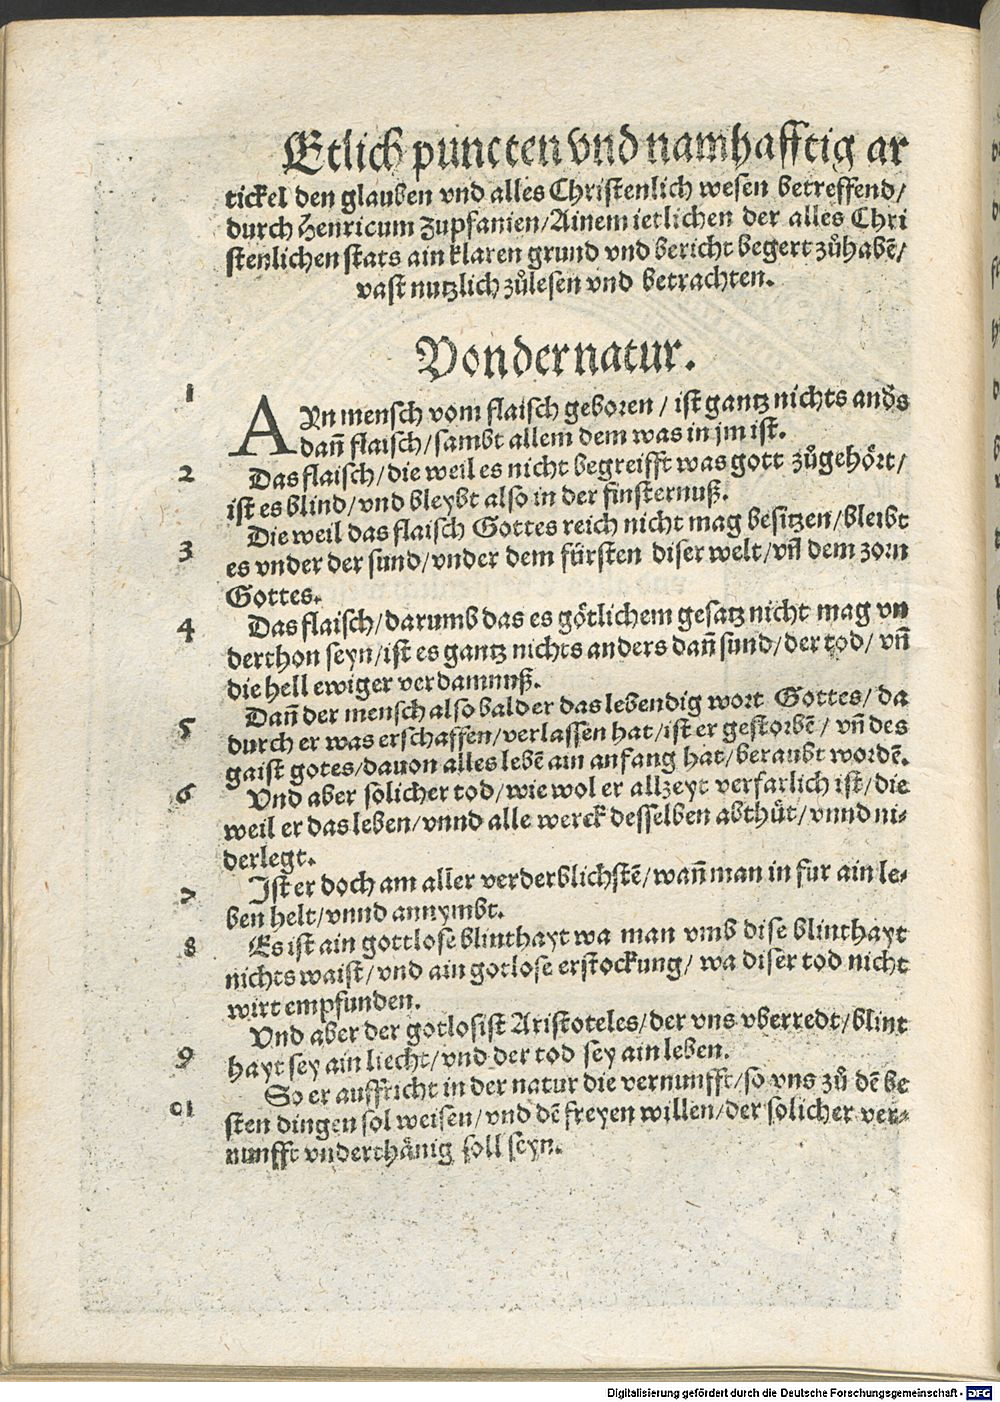 Etlich puncten vnd namhafftig ar
tickel den glauben vnd alles Christenlich wesen betreffend/
durch Henricum Zupfanien/Ainem ietlichen der alles Chri
stenlichen stats ain klaren grund vnd bericht begert zůhabē/
vast nutzlich zůlesen vnd betrachten.
Von der natur.
1 AYn mensch vom flaisch geboren / ist gantz nichts anđs
dañ flaisch/sambt allem dem was in jm ist.
2 Das flaisch/die weil es nicht begreifft was gott zůgehört/
ist es blind/vnd bleybt also in der finsternuß.
Die weil das flaisch Gottes reich nicht mag besitzen/bleibt
3 es vnder der sund/vnder dem fürsten diser welt/vñ dem zorn
Gottes.
4 Das flaisch/darumb das es götlichem gesatz nicht mag vn
derthon seyn/ist es gantz nichts anders dañ sund/der tod/ vñ
die hell ewiger verdamnuß.
Dañ der mensch also bald er das lebendig wort Gottes/ da
5 durch er was erschaffen/verlassen hat/ist er gestorbē/ vñ des
gaist gotes/dauon alles lebē ain anfang hat/beraubt wordē.
6 Vnd aber solicher tod/wie wol er allzeyt verfarlich ist/die
weil er das leben/vnnd alle werck desselben abthůt/vnnd ni-
derlegt.
7 Ist er doch am aller verderblichstē/wañ man in fur ain le-
ben helt/vnnd annymbt.
8 Es ist ain gottlose blinthayt wa man vmb dise blinthayt
nichts waist/vnd ain gotlose erstockung/ wa diser tod nicht
wirt empfunden.
Vnd aber der gotlosist Aristoteles/der vns vberredt/blint
9 hayt sey ain liecht/vnd der tod sey ain leben.
So er auffricht in der natur die vernunfft/so vns zů dē be
01 sten dingen sol weisen/vnd dē freyen willen/der solicher ver-
nunfft vnderthänig soll seyn.
Digitalisierung gefördert durch die Deutsche Forschungsgemeinschaft - DFG